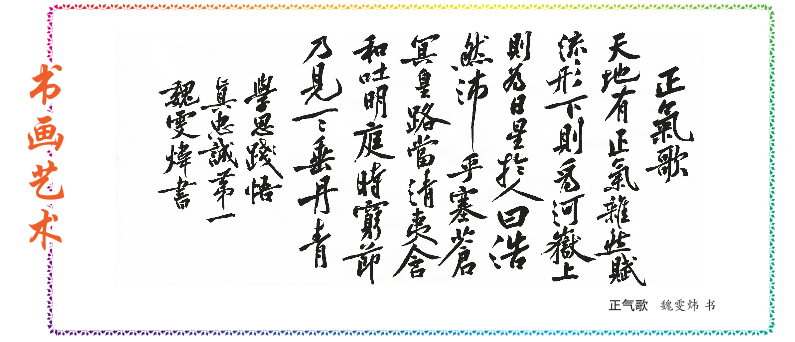 书画艺术
正氣歌
天地有正氣雜然賦
流形下則為河嶽上
則為日星於人曰浩
然沛乎塞蒼
冥皇路當清夷含
和吐明庭時窮節
乃見一ミ垂丹青
學思踐悟
真忠誠第一
魏雯煒書
正气歌 魏雯炜 书